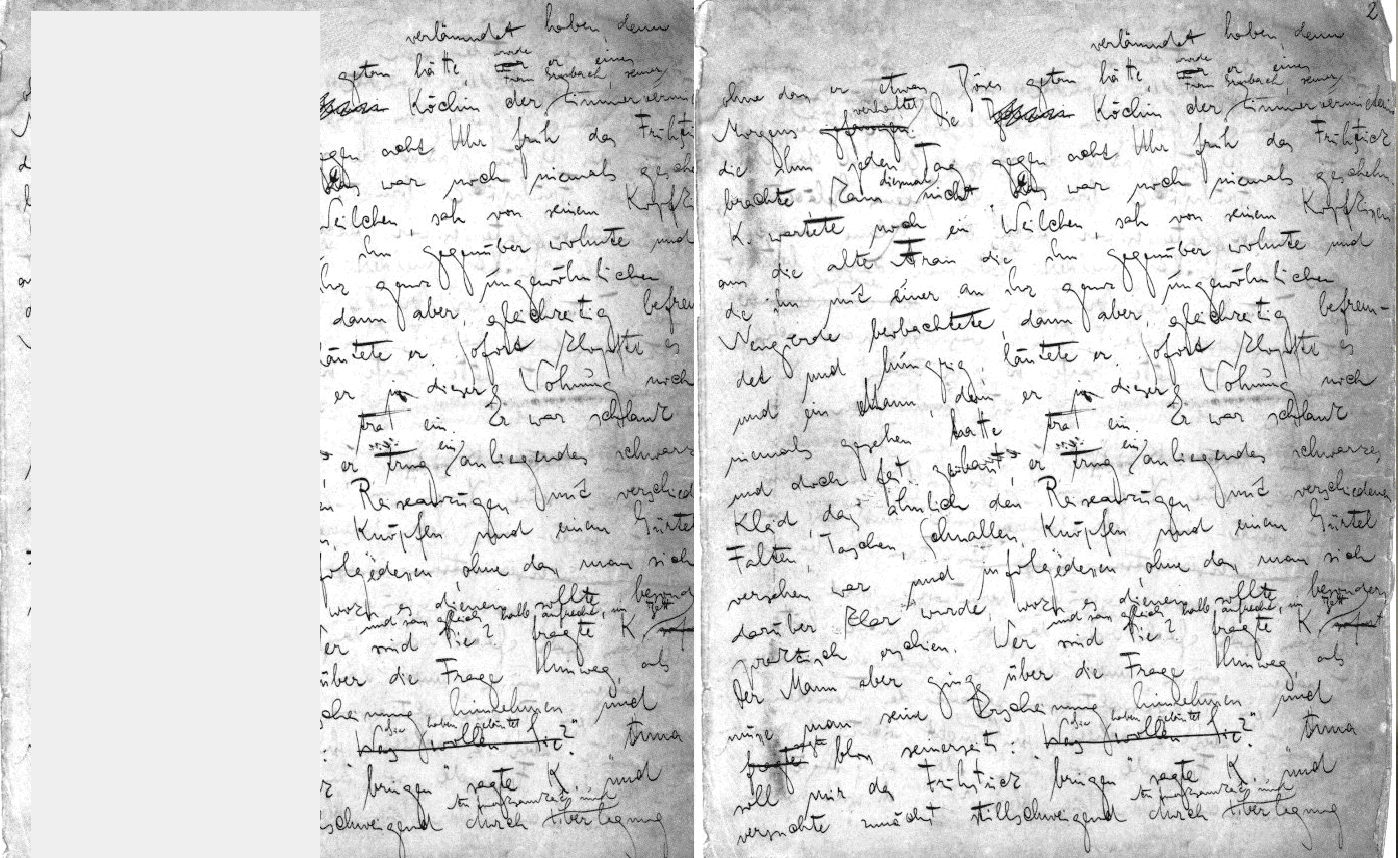 verläumdet haben, denn
wurde
getan hätte, war er eines
Frau Grubach, seiner
Köchin der Zimmervermi
gegen acht Uhr früh das Frühst
Das war noch niemals gesche
Weilchen, sah von seinem Kopfki
ihm gegenüber wohnte und
ihr ganz ungewöhnlichen
dann aber, gleichzeitig befrem
läutete er. Sofort klopfte es
er in dieser Wohnung noch
trat ein. Er war schlank
ein
er trug anliegendes schwarz
Reiseanzügen mit verschied
Knöpfen und einem Gürtel
folgedessen, ohne dass man sich
wozu es dienen sollte, besond
und sass gleich halb aufrecht im Bett
er sind Sie? fragte K.
über die Frage hinweg, als
hinnehmen und
Sie haben geläutet
Was wollen Sie?" Anna
bringen" sagte K. und
schweigend durch Überlegung
2
verläumdet haben, denn
wurde
ohne dass er etwas Böses getan hätte, war er eines
verhaftet Frau Grubach, seiner
Morgens gefangen. Die Köchin der Zimmervermieterin
die ihm jeden Tag gegen acht Uhr früh das Frühstück
diesmal
brachte kam nicht. Das war noch niemals geschehn
K. wartete noch ein Weilchen, sah von seinem Kopfkissen
aus die alte Frau die ihm gegenüber wohnte und
die ihn mit einer an ihr ganz ungewöhnlichen
Neugierde beobachtete, dann aber, gleichzeitig befrem-
det und hungrig, läutete er. Sofort klopfte es
und ein Mann, den er in dieser Wohnung noch
niemals gesehen hatte trat ein. Er war schlank
ein
und doch fest gebaut, er trug anliegendes schwarzes
Kleid, das ähnlich den Reiseanzügen mit verschiedenen
Falten, Taschen, Schnallen, Knöpfen und einem Gürtel
versehen war und infolgedessen, ohne dass man sich
darüber klar wurde, wozu es dienen sollte, besonders
und sass gleich halb aufrecht im Bett
praktisch erschien. Wer sind Sie? fragte K.
Der Mann aber ging über die Frage hinweg, als
müsse man seine Erscheinung hinnehmen und
sagte Sie haben geläutet
fragte bloss seinerseits: Was wollen Sie?" Anna
soll mir das Frühstück bringen" sagte K. und
versuchte zunächst stillschweigend durch Überlegung